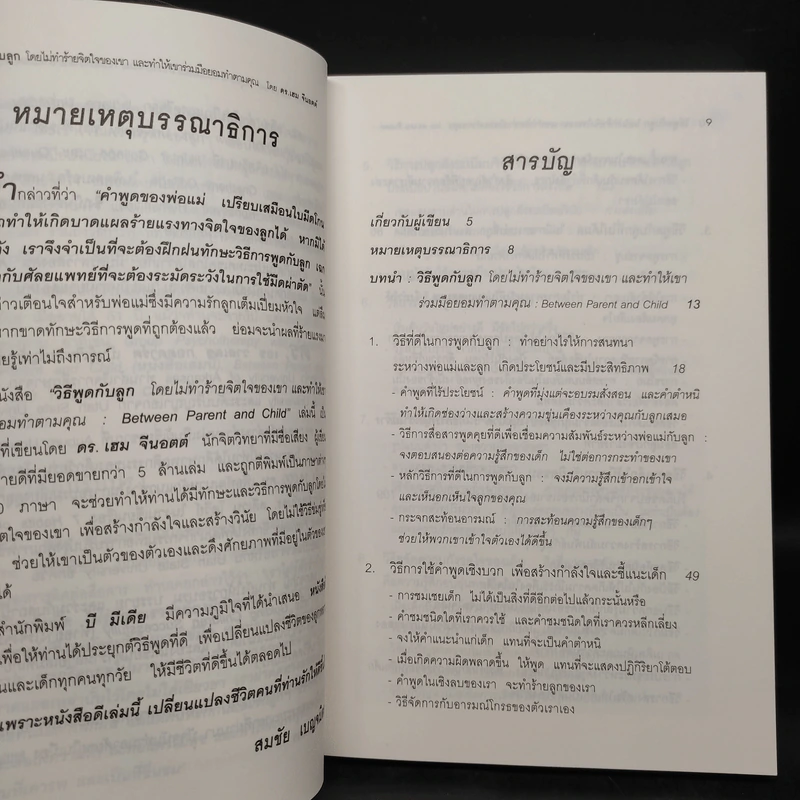 โดยไม่ทำร้ายจิตใจของเขา และทำให้เขาร่วมมือยอมทำตามคุณ โดย ดร.เฮม จีนอตต์
หมายเหตุบรรณาธิการ
กล่าวที่ว่า "คำพูดของพ่อแม่ เปรียบเสมือนใบมีดโกน
ทำให้เกิดบาดแผลร้ายแรงทางจิตใจของลูกได้ หากมิได้
เราจึงจำเป็นที่จะต้องฝึกฝนทักษะวิธีการพูดกับลูก
กับศัลยแพทย์ที่จะต้องระมัดระวังในการใช้มีดผ่าตัด"
เตือนใจสำหรับพ่อแม่ซึ่งมีความรักลูกเต็มเปี่ยมหัวใจ
ขาดทักษะวิธีการพูดที่ถูกต้องแล้ว ย่อมจะนำผลที่ร้ายแรงมา
รู้เท่าไม่ถึงการณ์
"วิธีพูดกับลูก โดยไม่ทำร้ายจิตใจของเขา และทำให้เขา
ทำตามคุณ : Between Parent and Child" เล่มนี้
ที่เขียนโดย ดร. เฮม จีนอตต์ นักจิตวิทยาที่มีชื่อเสียง
ขายดีที่มียอดขายกว่า 5 ล้านเล่ม และถูกตีพิมพ์เป็นภาษาต่างๆ
ภาษา จะช่วยทำให้ท่านได้มีทักษะและวิธีการพูดกับลูกโดยไม่
ของเขา เพื่อสร้างกำลังใจและสร้างวินัย โดยไม่ใช้วิธีข่มขู่
ช่วยให้เขาเป็นตัวของตัวเองและดึงศักยภาพที่มีอยู่ในตัวของ
ได้
สำนักพิมพ์ บี มีเดีย มีความภูมิใจที่ได้นำเสนอ หนังสือ
เพื่อให้ท่านได้ประยุกต์วิธีพูดที่ดี เพื่อเปลี่ยนแปลงชีวิตของลูก
และเด็กทุกคนทุกวัย ให้มีชีวิตที่ดีขึ้นได้ตลอดไป
เพราะหนังสือดีเล่มนี้ เปลี่ยนแปลงชีวิตคนที่ท่านรักให้ดีขึ้น
สมชัย
9
สารบัญ
เกี่ยวกับผู้เขียน 5
หมายเหตุบรรณาธิการ 8
บทนำ : วิธีพูดกับลูก โดยไม่ทำร้ายจิตใจของเขา และทำให้เขา
ร่วมมือยอมทำตามคุณ : Between Parent and Child 13
1. วิธีที่ดีในการพูดกับลูก : ทำอย่างไรให้การสนทนา
ระหว่างพ่อแม่และลูก เกิดประโยชน์และมีประสิทธิภาพ 18
- คำพูดที่ไร้ประโยชน์ : คำพูดที่มุ่งแต่จะอบรมสั่งสอน และคำตำหนิ
ทำให้เกิดช่องว่างและสร้างความขุ่นเคืองระหว่างคุณกับลูกเสมอ
- วิธีการสื่อสารพูดคุยที่ดีเพื่อเชื่อมความสัมพันธ์ระหว่างพ่อแม่กับลูก :
จงตอบสนองต่อความรู้สึกของเด็ก ไม่ใช่ต่อการกระทำของเขา
- หลักวิธีการที่ดีในการพูดกับลูก : จงมีความรู้สึกเข้าอกเข้าใจ
และเห็นอกเห็นใจลูกของคุณ
- กระจกสะท้อนอารมณ์ : การสะท้อนความรู้สึกของเด็กๆ
ช่วยให้พวกเขาเข้าใจตัวเองได้ดีขึ้น
2. วิธีการใช้คำพูดเชิงบวก เพื่อสร้างกำลังใจและชี้แนะเด็ก 49
- การชมเชยเด็ก ไม่ได้เป็นสิ่งที่ดีอีกต่อไปแล้วกระนั้นหรือ
- คำชมชนิดใดที่เราควรใช้ และคำชมชนิดใดที่เราควรหลีกเลี่ยง
- จงให้คำแนะนำแก่เด็ก แทนที่จะเป็นคำตำหนิ
- เมื่อเกิดความผิดพลาดขึ้น ให้พูด แทนที่จะแสดงปฏิกิริยาโต้ตอบ
- คำพูดในเชิงลบของเรา จะทำร้ายลูกของเรา
- วิธีจัดการกับอารมณ์โกรธของตัวเราเอง